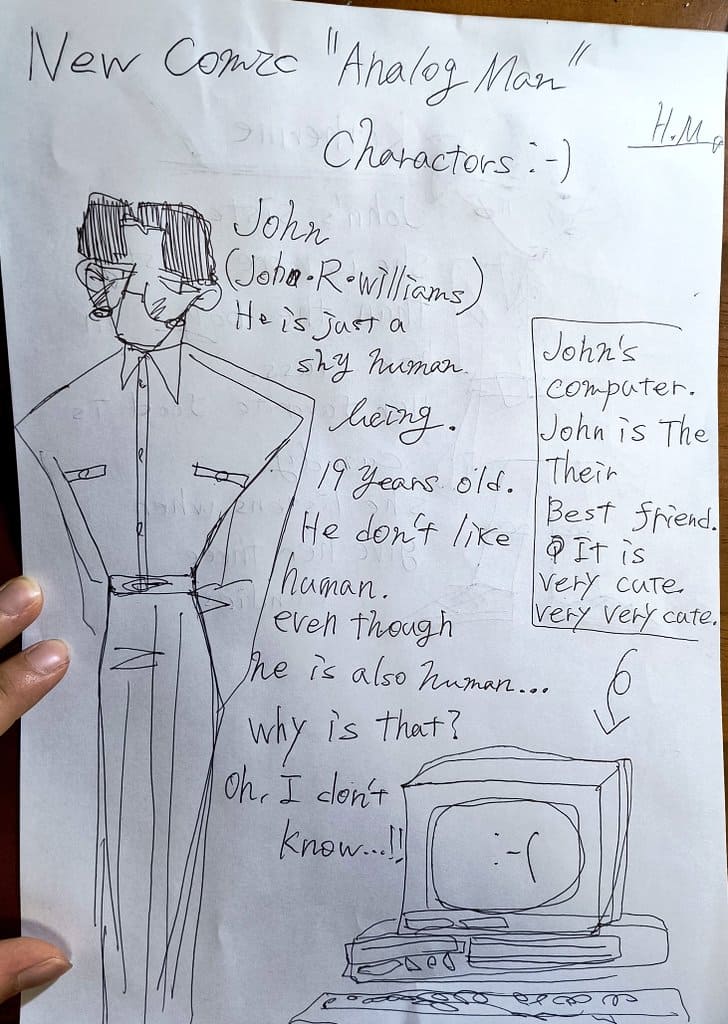 New Comic "Analog Man"
Charactors :-)
H.M.
John
(John・R・williams)
He is just a
shy human
being.
19 Years old.
He don't like
human.
even though
he is also human...
why is that?
Oh, I don't
know...!!
John's
computer.
John is The
Their
Best friend.
It is
very cute.
very very cute.
:-(